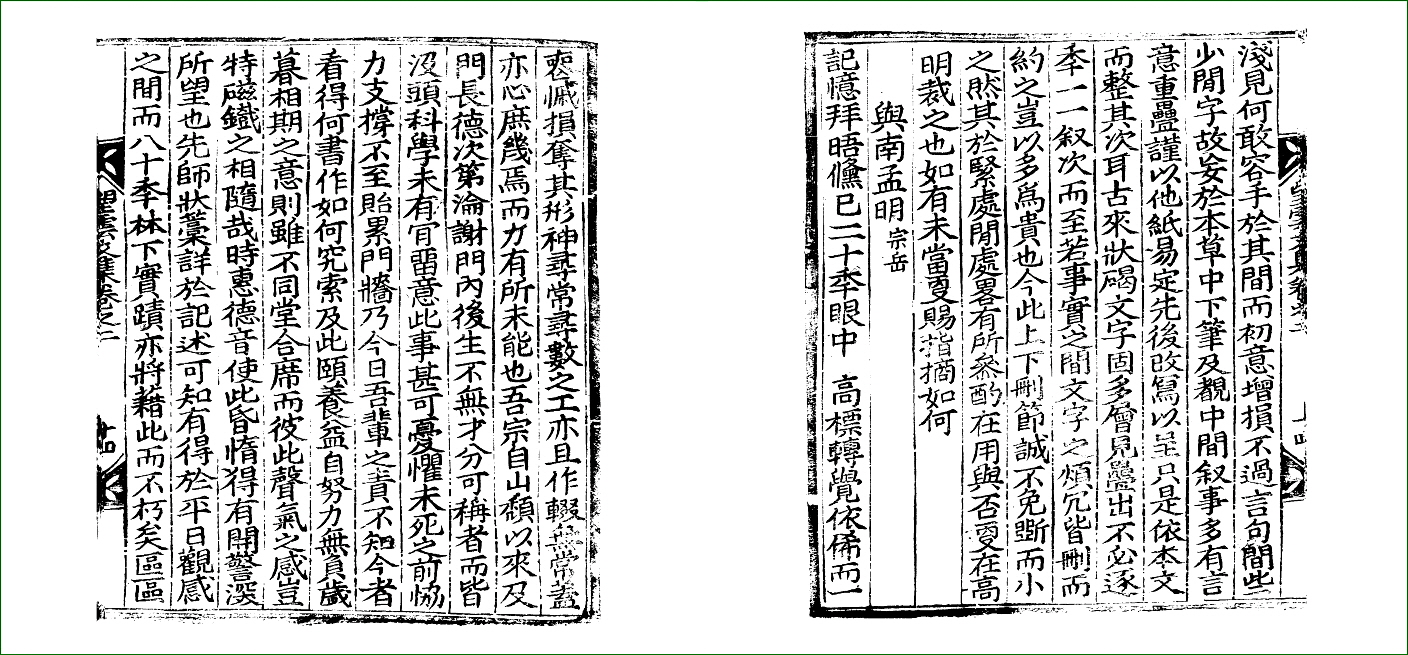 淺見何敢容手於其間而初意增損不過言句間些
少閒字故妄於本草中下筆及覯中間叙事多有言
意重疊謹以他紙易定先後改寫以呈只是依本文
而整其次耳古來狀碣文字固多層見疊出不必逐
季一一叙次而至若事實之間文字之煩冗皆刪而
約之豈以多爲貴也今此上下刪節誠不免斷而小
之然其於緊處閒處畧有所叅酌在用與否更在高
明裁之也如有未當更賜指摘如何
與南孟明宗岳
記憶拜晤儵已二十季眼中 高標轉覺依俙而一
喪慽損奪其形神尋常尋數之工亦且作輟無常盍
亦心庶幾焉而力有所未能也吾宗自山頹以來及
門長德次第淪謝門內後生不無才分可稱者而皆
汲頭科學未有肎畱意此事甚可憂懼未死之前恊
力支撐不至貽累門牆乃今日吾輩之責不知今者
看得何書作如何究索及此頤養益自努力無負歲
暮相期之意則雖不同堂合席而彼此聲氣之感豈
特磁鐵之相隨哉時惠德音使此昏惰得有開警深
所望也先師狀藁詳於記述可知有得於平日觀感
之間而八十季林下實蹟亦將藉此而不朽矣區區
望雲文集卷之二